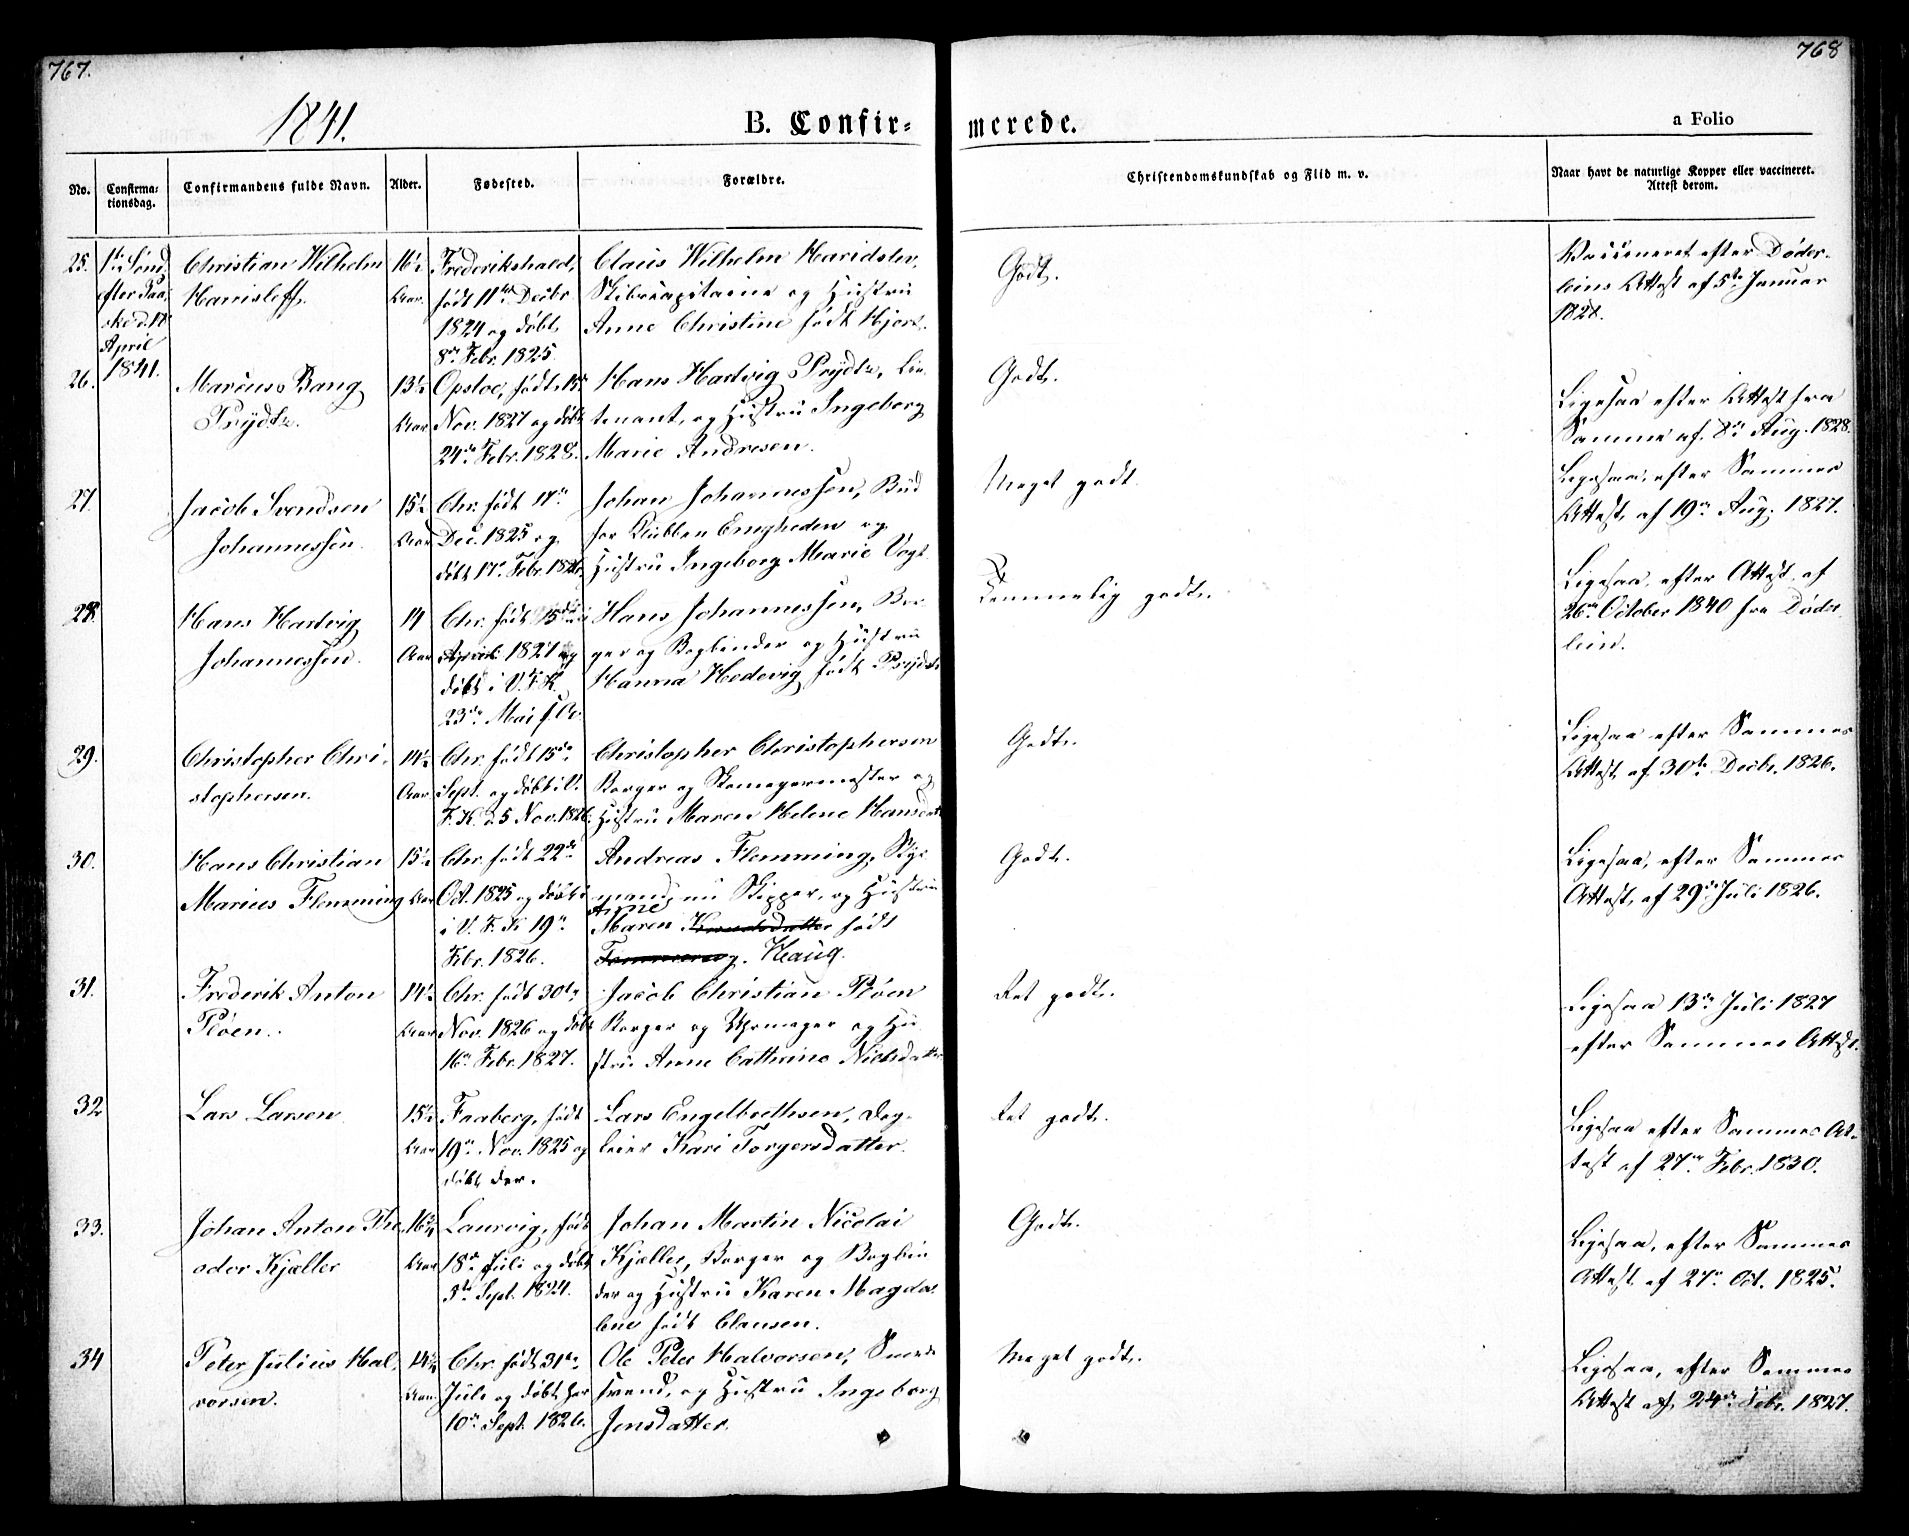 767.
768
1841.
B. Confir=
merede.
a Folio
No.
Confirma-
tionsdag.
Confirmandens fulde Navn.
Alder.
Fødested.
Forældre.
Christendomskundskab og Flid m. v.
Naar havt de naturlige Kopper eller vaccineret.
Attest derom.
25.
1ste Sønd.
efter Paa-
ske d. 18
April
1841.
Christian Wilhelm
Harrisleff.
16½
Aar.
Frederikshald,
født 11te Decbr
1824 og døbt
8de Febr. 1825.
Claus Wilhelm Haridslev,
Skibscapitaine og Hustru
Anne Christine født Hjort.
Godt.
Vaccineret efter Døder-
leins Attest af 5te Januar
1828.
26.
Marcus Bang
Prydtz.
13½
Aar
Opsloe, født 15de
Nov. 1827 og døbt
24de Febr. 1828.
Hans Hartvig Prydtz, Lieu-
tenant, og Hustru Ingeborg
Marie Andresen.
Godt.
Ligesaa efter Attest fra
Samme af 8de Aug. 1828.
27.
Jacob Svendsen
Johannessen.
15½
Aar
Chr. født 17de
Dec. 1825 og
døbt 17de Febr. 1826.
Johan Johannessen, Bud
for Klubben Enigheden og
Hustru Ingeborg Marie Vogt.
Meget godt.
Ligesaa, efter Sammes
Attest, af 19de Aug. 1827.
28.
Hans Hartvig
Johannessen.
14
Aar
Chr. født 15de
April 1827 og
døbt i V. F. K.
23de Mai s. A.
Hans Johannessen, Bor-
ger og Bogbinder og Hustru
Hanna Hedevig født Prydtz
Temmelig godt.
Ligesaa, efter Attest, af
26de October 1840 fra Døder
lein.
29.
Christopher Chri-
stophersen.
14½
Aar.
Chr. født 15de
Sept. og døbt i V.
F. K. d. 5 Nov. 1826.
Christopher Christophersen
Borger og Skomagermester og
Hustru Maren Helene Hansdatter
Godt.
Ligesaa efter Sammes
Attest, af 30te Decbr. 1826.
30.
Hans Christian
Marius Flemming
15½
Aar
Chr. født 22de
Oct. 1825 og døbt
i V. F. K 19de
Febr. 1826.
Andreas Flemming, Styr
mand, nu Skipper, og Hustru
Anne
Maren født
Haug.
Godt.
Ligesaa, efter Sammes
Attest, af 29de Juli 1826.
31.
Frederik Anton
Pløen.
14½
Aar
Chr. født 30te
Nov. 1826 og døbt
16de Febr. 1827.
Jacob Christian Pløen
Borger og Uhrmager og Hu
stru Anne Cathrine Nielsdatter
Ret godt.
Ligesaa 13de Juli 1827
efter Sammes Attest.
32
Lars Larsen
15½
Aar
Faaberg, født
19de Nov. 1825 og
døbt der.
Lars Engelbrethsen, Dag-
leier Kari Torgersdatter.
Ret godt.
Ligesaa efter Sammes At-
test af 27de Febr. 1830.
33.
Johan Anton The
odor Kjæller
16¾
Aar
Laurvig, født
18de Juli og døbt
3de Sept. 1824.
Johan Martin Nicolai
Kjæller, Borger og Bogbin
der og Hustru Karen Magda-
lene født Clausen.
Godt.
Ligesaa, efter Sammes
Attest af 27de Oct. 1825.
34
Peter Julius Hal,
vorsen.
14¾
Aar.
Chr. født 31te
Juli og døbt her
10de Sept. 1826.
Ole Peter Halvorsen, Snedker-
svend, og Hustru Ingeborg
Jensdatter.
Meget godt.
Ligesaa, efter Sammes
Attest af 24de Febr. 1827.